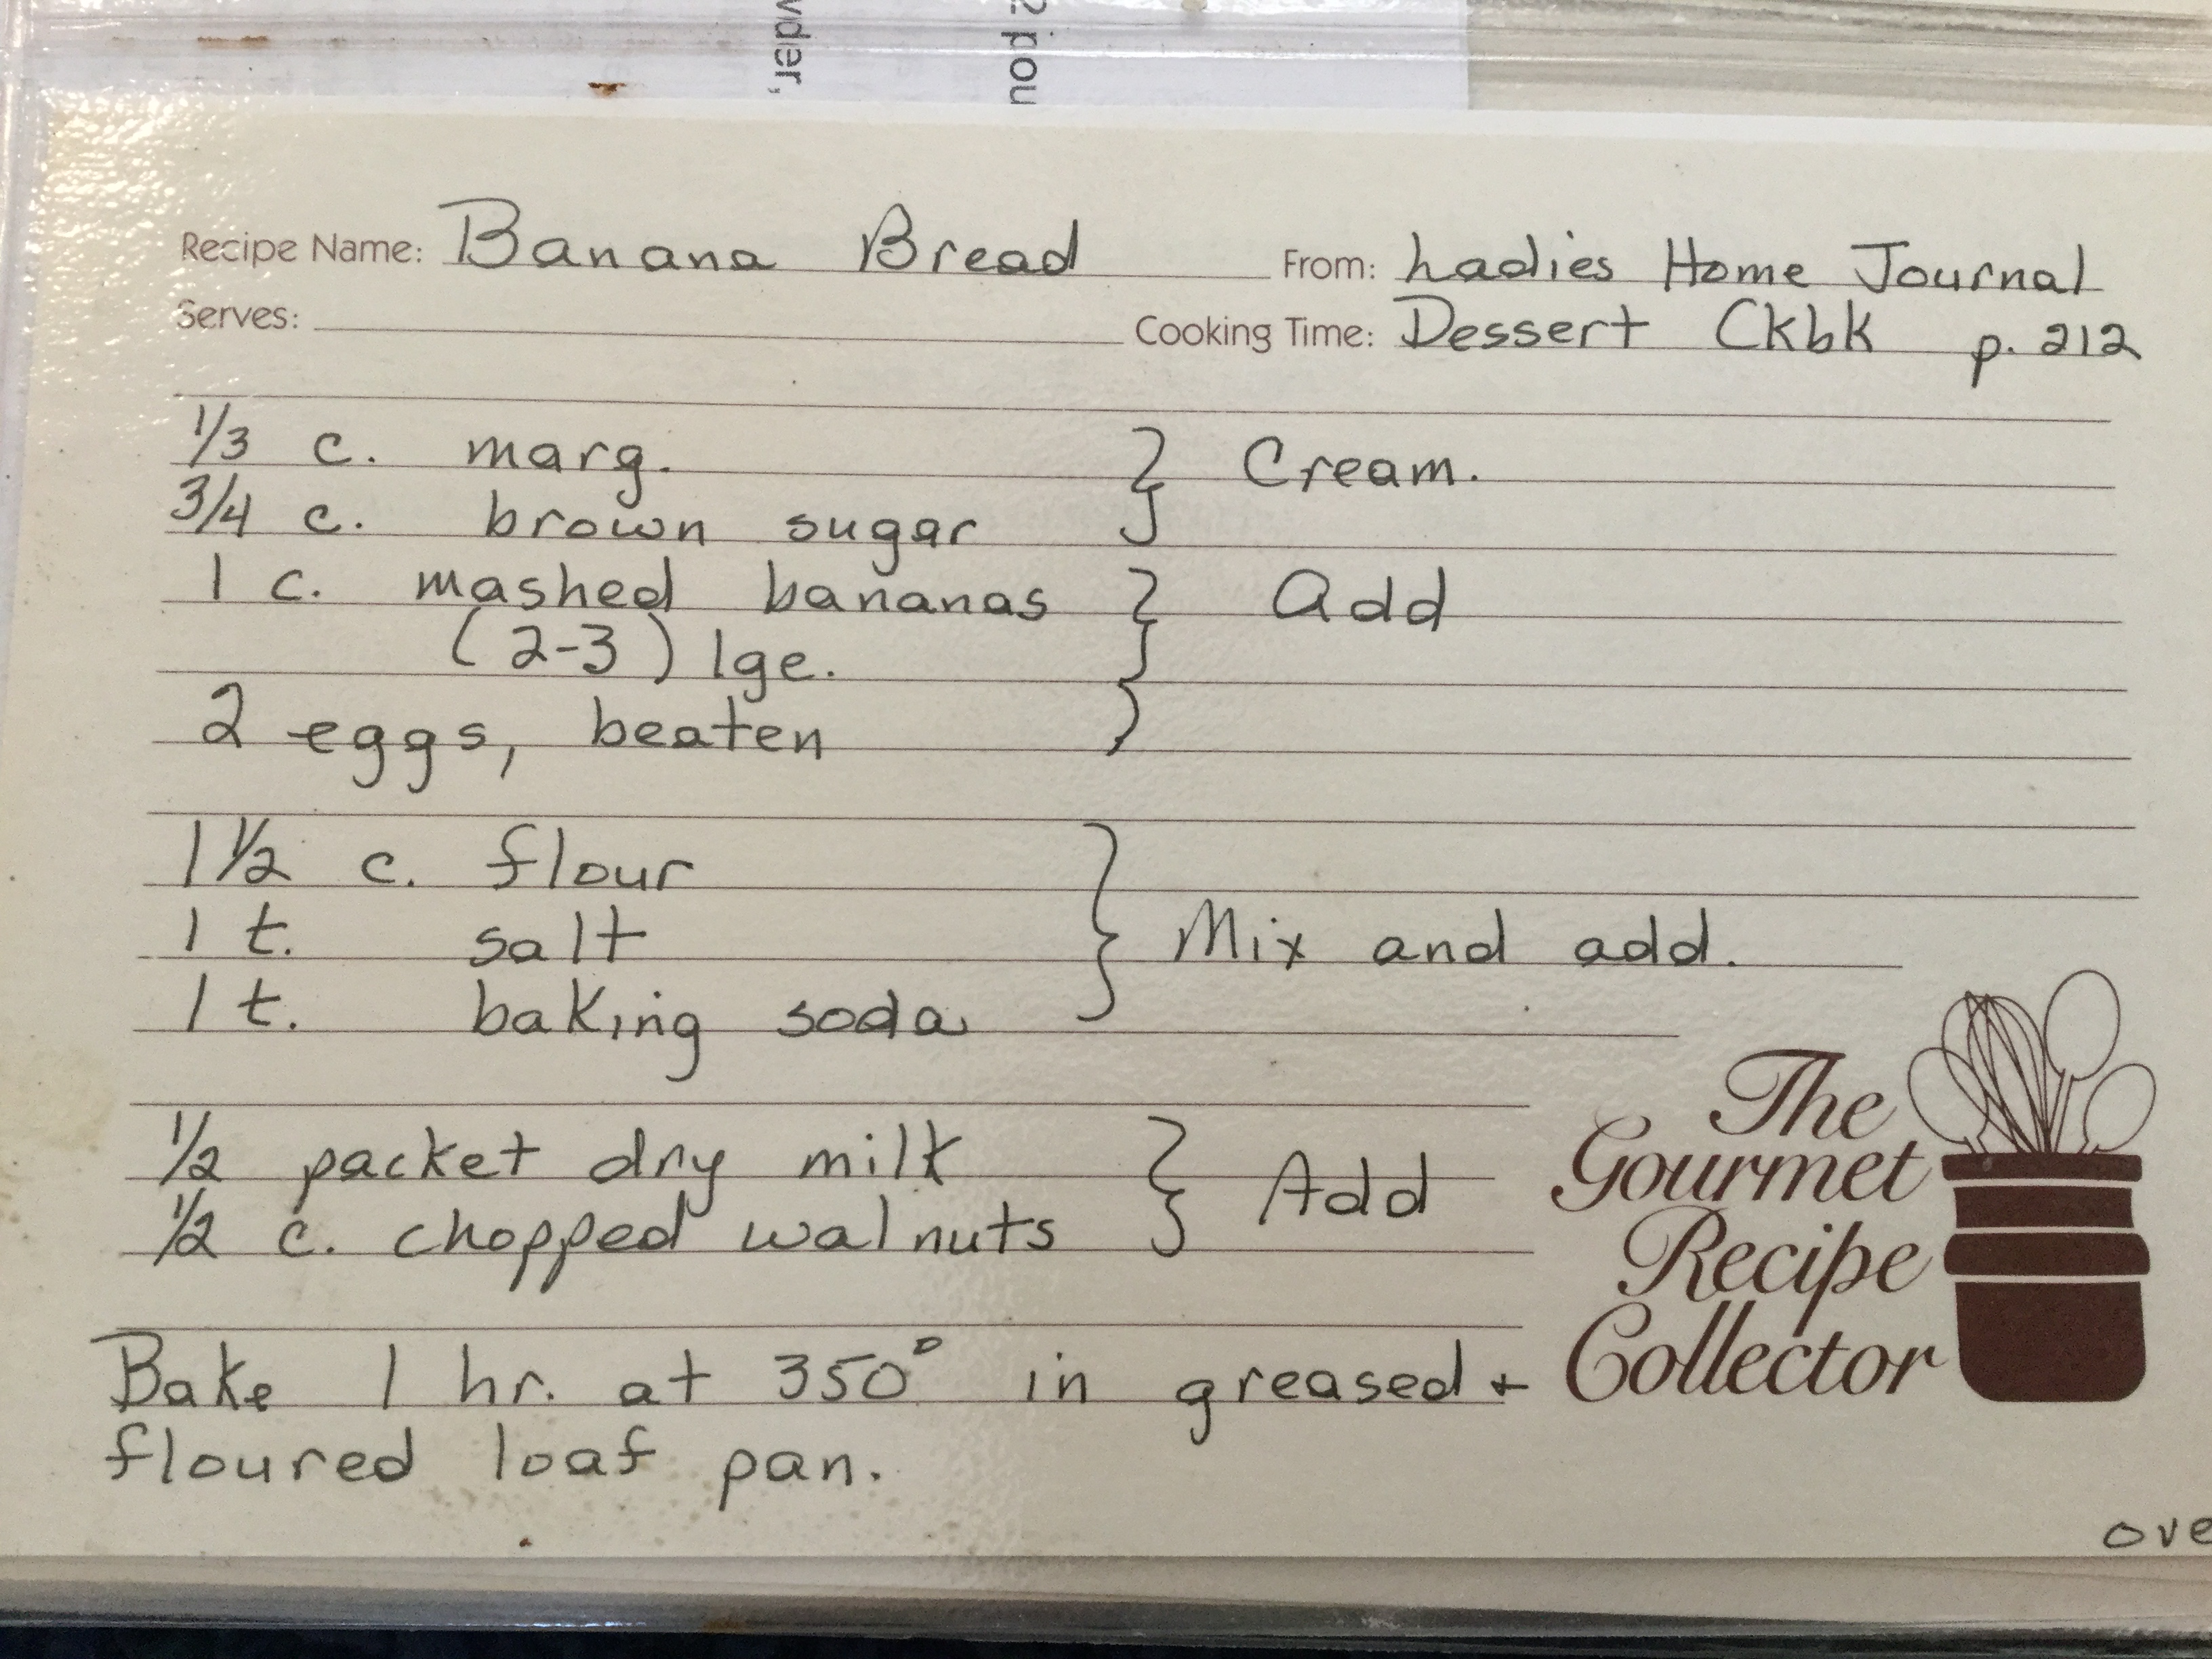 vider,
2 pou
Recipe Name: Banana Bread From: Ladies Home Journal
Serves: Cooking Time: Dessert Ckbk p. 212
1/3 c. marg. } Cream.
3/4 c. brown sugar
1 c. mashed bananas } Add
(2-3) lge.
2 eggs, beaten
1 1/2 c. flour
1 t. salt } Mix and add.
1 t. baking soda
1/2 packet dry milk } Add
1/2 c. chopped walnuts
Bake 1 hr. at 350° in greased +
floured loaf pan.
The
Gourmet
Recipe
Collector
ove